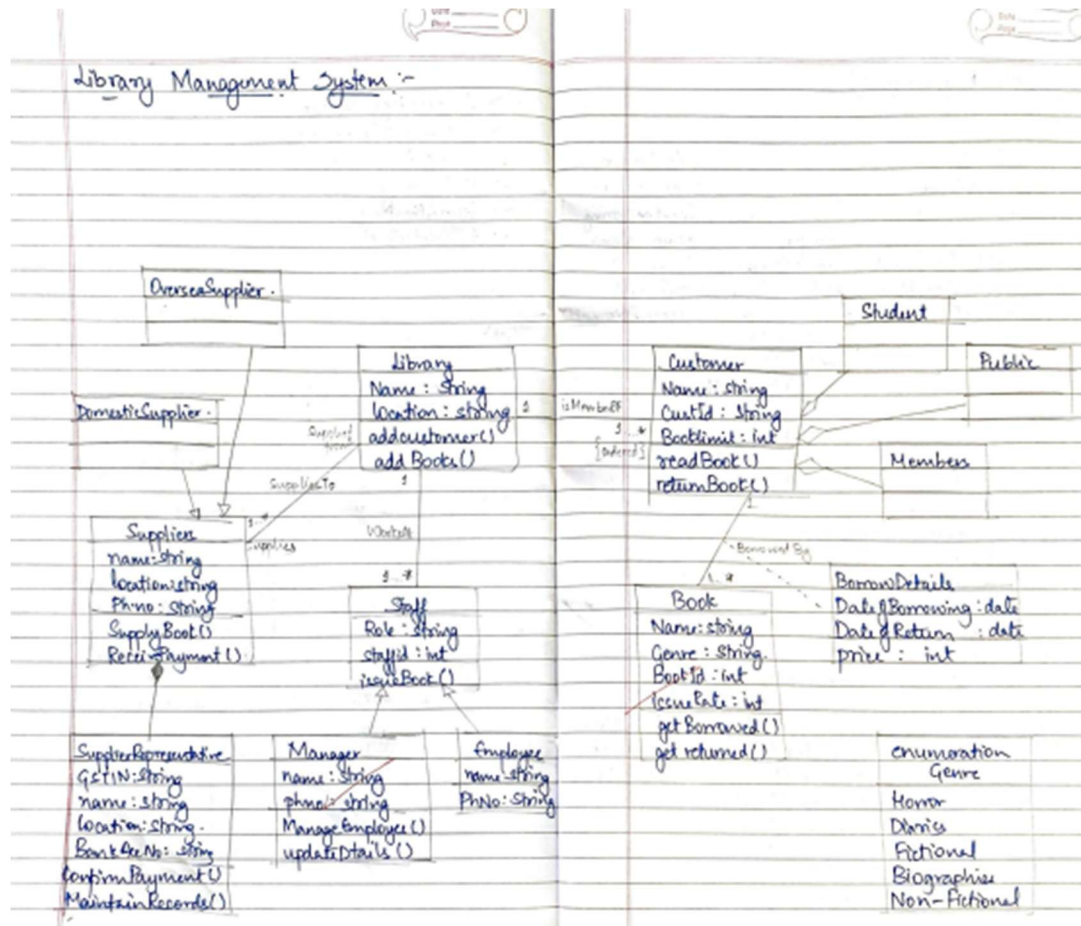 Date
Page
Date
Page
Library Management System :-
OverseaSupplier.
DomesticSupplier.
Library
Name : String
location : string
addcustomer()
add Books()
1
1
Supplied
from
SuppliesTo
1..*
Supplies
WorksAt
1..*
Suppliers
name:string
location:string
Ph:no: String
SupplyBook()
ReceivePayment()
Staff
Role : string
staffid : int
issueBook()
SupplierRepresentative
GSTIN:String
name: string
location: string.
BankAccNo: string
ConfirmPayment()
MaintainRecords()
Manager
name: string
phno: string
ManageEmployee()
updateDtails()
Employee
name-string
PhNo: String
Student
Public
Members
Customer
Name : string
CustId : String
Booklimit : int
readBook()
returnBook()
isMemberOf
1...*
{ordered}
1
Borrowed By
1..*
Book
Name: string
Genre : String.
BookId : int
issueRate : int
getBorrowed()
get returned()
BorrowDetails
DateofBorrowing : date
DateofReturn : date
price : int
enumoration
Genre
Horror
Diaries
Fictional
Biographies
Non-Fictional